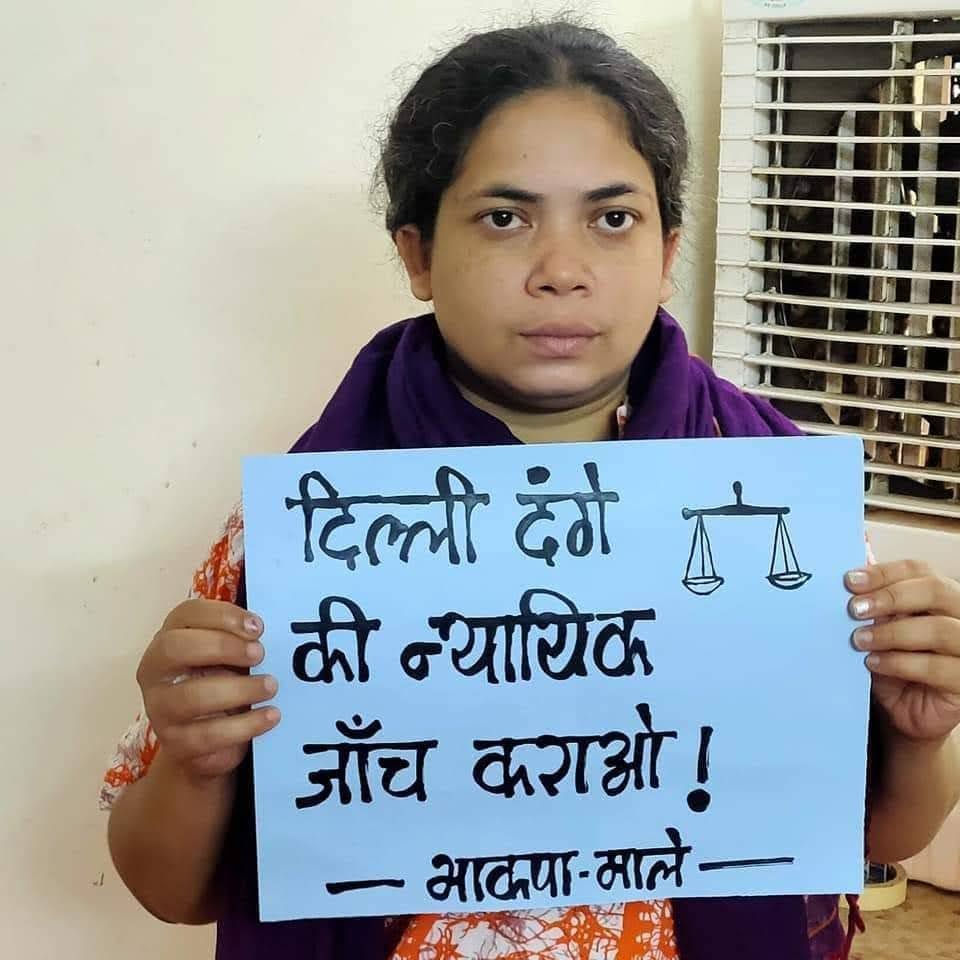 दिल्ली दंगे
की न्यायिक
जाँच कराओ!
— भाकपा-माले —